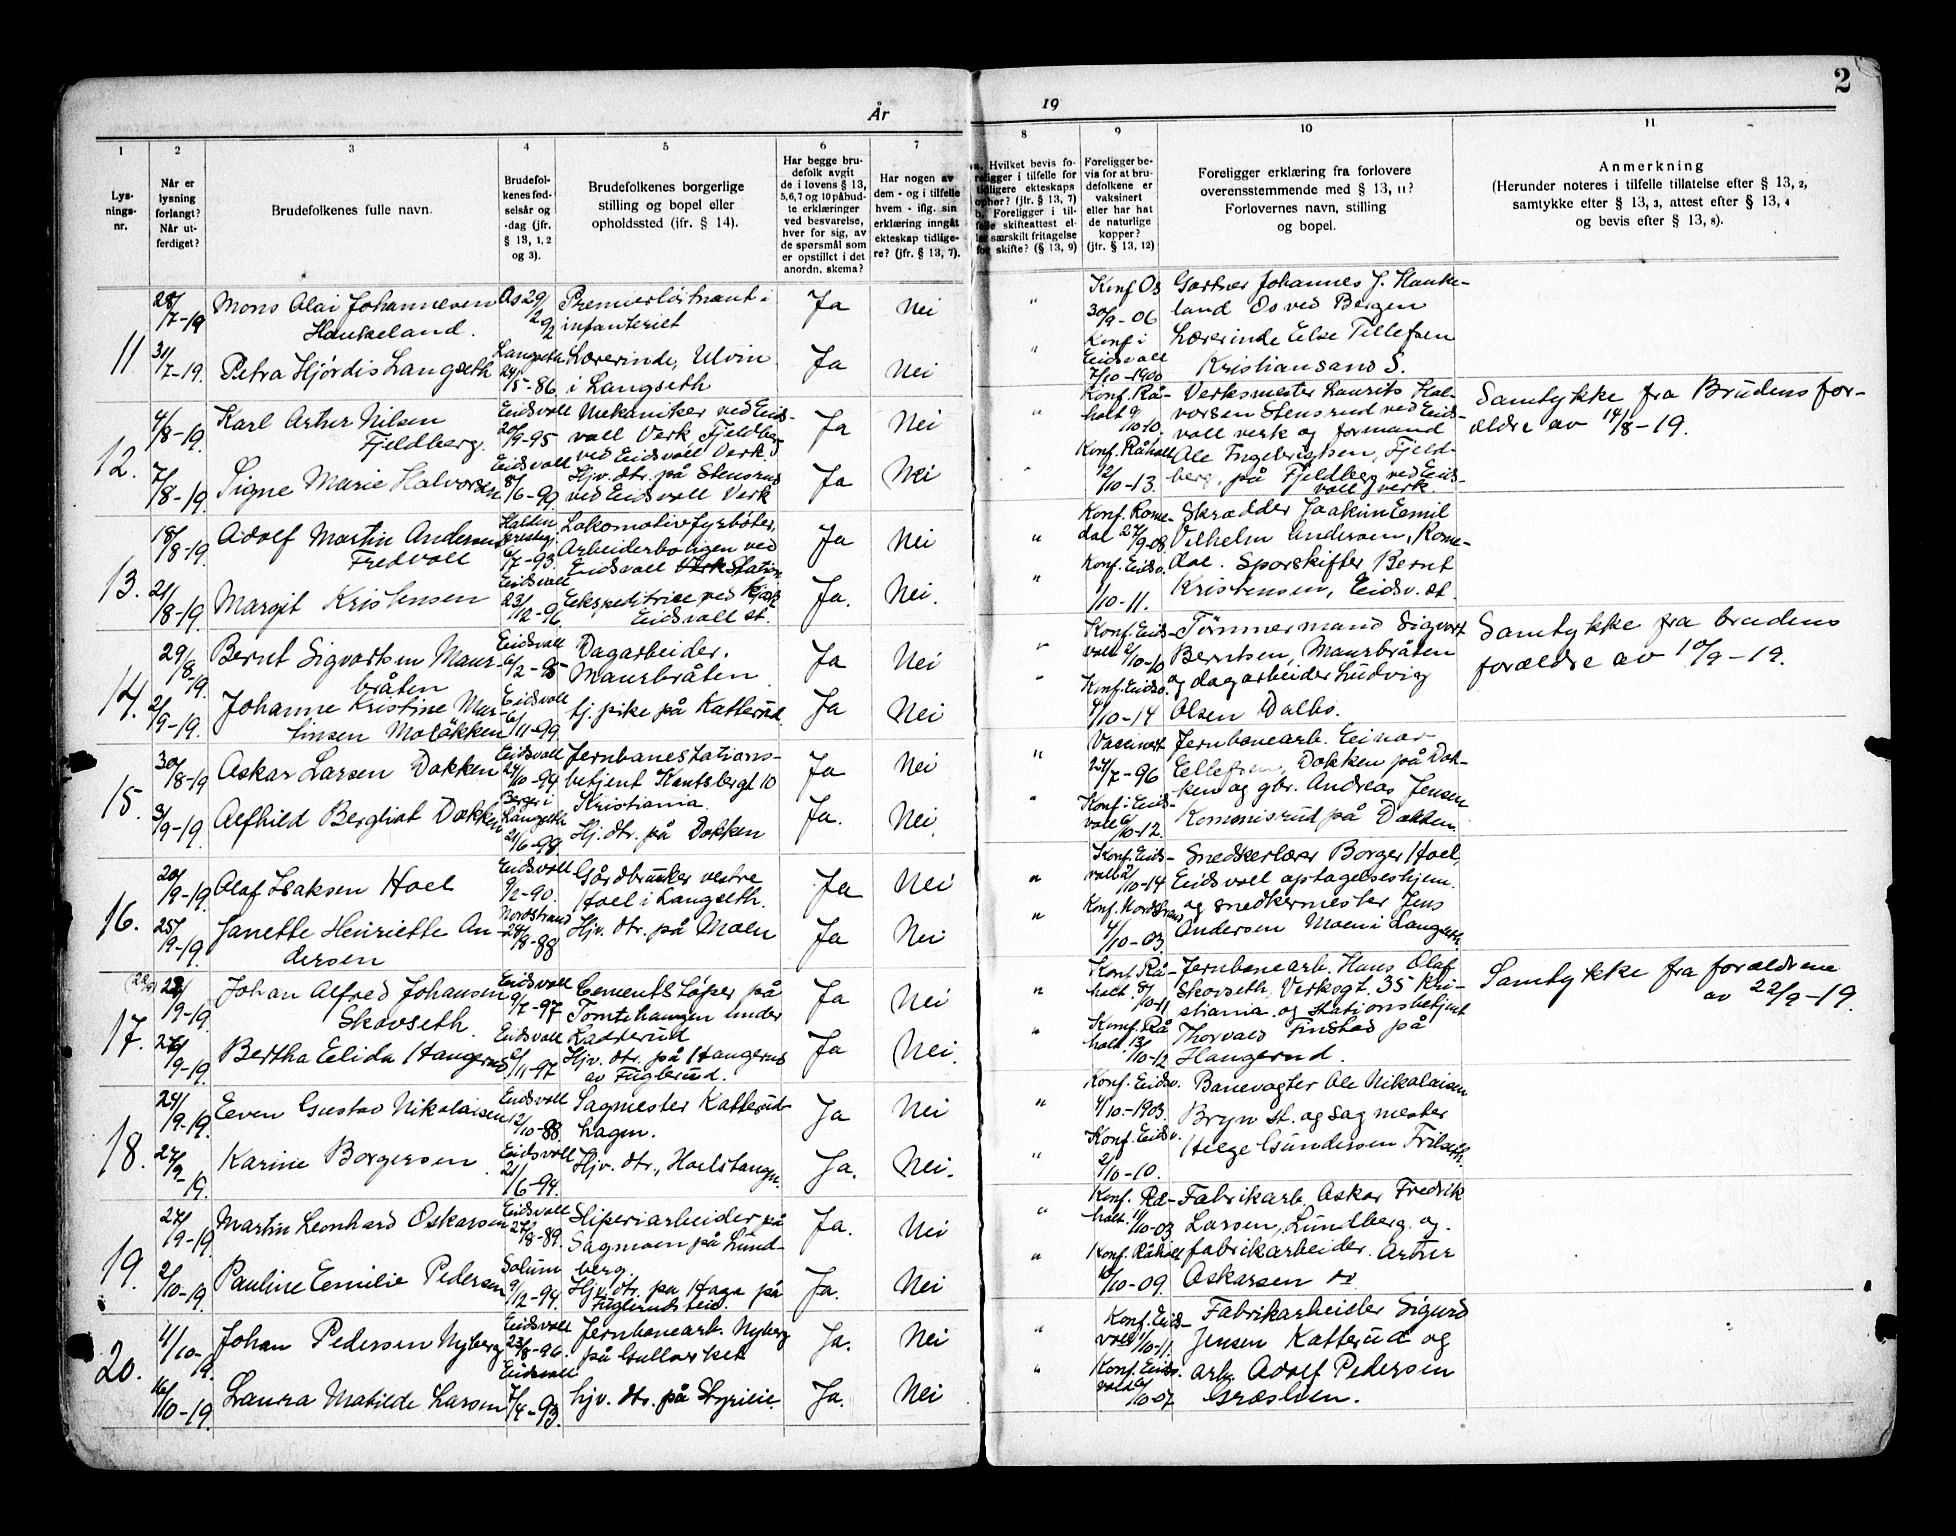 2
År
19
1
2
3
4
5
6
7
8
9
10
11
Lys-
nings-
nr.
Når er
lysning
forlangt?
Når ut-
ferdiget?
Brudefolkenes fulle navn.
Brudefol-
kenes fød-
selsår og
-dag (jfr.
§ 13, 1, 2
og 3).
Brudefolkenes borgerlige
stilling og bopel eller
opholdssted (ifr. § 14).
Har begge bru-
defolk avgit
de i lovens § 13,
5,6,7 og 10 påbud-
te erklæringer
ved besvarelse,
hver for sig, av
de spørsmål som
er opstillet i det
anordn. skema?
Har nogen av
dem - og i tilfelle
hvem - iflg. sin
erklæring inngåt
ekteskap tidlige-
re? (jfr. § 13, 7).
a. Hvilket bevis fo-
religger i tilfelle for
tidligere ekteskaps
ophør? (jfr. § 13, 7)
b. Foreligger i til-
felle skifteattest el-
ler særskilt fritagelse
for skifte? (§ 13, 9)
Foreligger be-
vis for at bru-
defolkene er
vaksinert
eller har hat
de naturlige
kopper?
(jfr. § 13, 12)
Foreligger erklæring fra forlovere
overensstemmende med § 13, 11?
Forlovernes navn, stilling
og bopel.
Anmerkning
(Herunder noteres i tilfelle tillatelse efter § 13, 2,
samtykke efter § 13, 3, attest efter § 13, 4
og bevis efter § 13, 8).
11
28/7-19
Mons Olai Johannesen
Haukeland.
Os 29/
9/2
Premierløitnant i
infanteriet
Ja
Nei
"
Konf Os
30/9-06
Gartner Johannes J. Hauke-
land Os ved Bergen
31/7-19.
Petra Hjørdis Langseth
Langseth
24/5-86
Lærerinde, Ulvin
i Langseth
Ja
Nei
"
Konf i
Eidsvoll
7/10-1900
Lærerinde Else Tellefsen
Kristiansand S.
12.
4/8-19.
Karl Artur Nilsen
Fjeldberg.
Eidsvoll
20/9-95
Mekaniker ved Eids-
voll Verk, Fjeldberg
ved Eidsvoll Verk.
Ja
Nei
"
Konf. Rå-
holt 9/
10-10.
Verksmester Laurits Hal-
vorsen Stensrud ved Eids-
voll verk og formand
Samtykke fra Brudens for-
ældre av 14/8-19.
7/8-19.
Signe Marie Halvorsen
Eidsvoll
8/6-99
Hjv. dtr. på Stensrud
ved Eidsvoll Verk
Ja
Nei
"
Konf. Råholt
12/10-13.
Ole Ingebrigtsen, Fjeld-
berg, på Fjeldberg ved Eids-
voll verk.
13.
18/8-19.
Adolf Martin Andersen
Fredvoll
6/7-93.
Lokomotivfyrbøter,
Arbeiderboligen ved
Eidsvoll Station
Ja
Nei
"
Konf. Rome-
dal 27/9-08.
Skrædder Joakim Emil
Vilhelm Andersen, Rome-
dal. Sporskifter Bernt
21/8-19.
Margit Kristensen
Eidsvoll
23/12-96.
Ekspeditrice ved
Eidsvoll st.
Ja.
Nei.
"
Konf. Eidsv.
1/10-11.
Kristensen, Eidsv. st.
14.
29/8-19.
Bernt Sigvartsen Maur-
bråten
Eidsvoll
6/2-95
Dagarbeider.
Maurbråten
Ja
Nei
"
Konf. Eids-
voll 2/10-10
Tømmermand Sigvart
Berntsen, Maurbråten
Samtykke fra brudens
forældre av 10/9-19.
2/9-19.
Johanne Kristine Mar-
tinsen Moløkken
Eidsvoll
6/11-99.
tj. pike på Katterud.
Ja
Nei
"
Konf. Eidsv.
4/10-14
og dagarbeider Ludvig
Olsen Dalbo.
15.
30/8-19
Oskar Larsen Dokken
Eidsvoll
24/10-94
Jernbanestations-
betjent Knutsbergt 10
Kristiania.
Ja
Nei
"
Vaccinert
24/7-96
Jernbanearb. Einar
Ellefsen, Dokken på Dok-
ken og gbr. Andreas Jensen
3/9-19.
Alfhild Bergliot Dokken
Berger i
Langseth
21/6-98
Hj. dtr. på Dokken
Ja.
Nei.
"
Konf i Eids-
voll 6/10-12.
Kommisrud på Dokken.
16.
20/9-19.
Olaf Isaksen Hoel
Eidsvoll
9/2-90.
Gårdbruker vestre
Hoel i Langseth.
Ja
Nei
"
Konf. Eids-
voll 2/10-14
Snedkerlærer Borger Hoel,
Eidsvoll optagelseshjem.
25/9-19.
Janette Henriette An-
dersen
Nordstrand
28/8-88
Hjv. dtr. på Moen
Ja
Nei
"
Konf. Nordstrand
4/10-03
og snedkermester Jens
Andersen Moen i Langseth.
17.
22/9-19.
Johan Alfred Johansen
Skovseth.
Eidsvoll
9/7-97
Cementstøper på
Tomtehaugen under
Katterud
Ja
Nei
"
Konf. Rå-
holt. 8/10-11
Jernbanearb. Hans Olaf
Skovseth, Verksgt. 35 Kri-
stiania og stationsbetjent
Samtykke fra forældrene
av 22/9-19.
26/9-19.
Bertha Elida Haugerud
Eidsvoll
6/11-97
Hjv. dtr. på Haugerud
av Fuglerud.
Ja
Nei.
"
Konf. Rå-
holt. 13/10-12
Thorvald Finstad på
Haugerud.
18.
24/9-19.
Even Gustav Nikolaisen
Eidsvoll
12/10-88.
Sagmester Katterud-
hagen.
Ja
Nei
"
Konf. Eidsv.
4/10-1903.
Banevogter Ole Nikolaisen
Bryn st. og sagmester
27/9-19.
Karine Borgersen
Eidsvoll
21/6-94.
Hjv. dtr., Hoelstangn.
Ja.
Nei.
"
Konf. Eidsv.
2/10-10.
Helge Gundersen Trilseth.
19.
27/9-19.
Martin Leonhard Oskarsen
Eidsvoll
27/8-89.
Sliperiarbeider på
Sagmoen på Lund-
berg.
Ja.
Nei
"
Konf. Rå-
holt. 11/10-03
Fabrikarb. Oskar Fredrik
Larsen, Lundberg. og
2/10-19.
Pauline Emilie Pedersen
Solum
9/12-94.
Hjv. dtr. på Haga på
Fuglerudseie.
Ja.
Nei
"
Konf. Råholt
10/10-09.
fabrikarbeider Artur
Oskarsen
20.
4/10-19.
Johan Pedersen Nyberg
Eidsvoll
23/8-96.
Jernbanearb. Nyberg
på Gullverket
Ja.
Nei
"
Konf. Eids-
voll 1/10-11.
Fabrikarbeider Sigurd
Jensen Katterud og
16/10-19.
Laura Matilde Larsen
Eidsvoll
7/4-93.
hjv. dtr. på Styrilie.
Ja.
Nei
"
Konf. Eids-
voll 6/10-07
arb. Adolf Pedersen
Græslien.